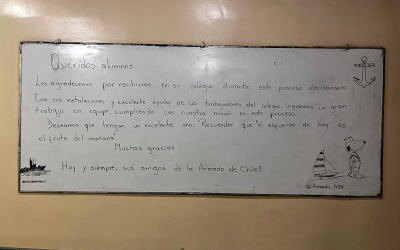 Queridos alumnos
Les agradecemos por recibirnos en su colegio durante este proceso eleccionario
Con sus instalaciones y excelente ayuda de los trabajadores del colegio, logramos un gran
trabajo en equipo, cumpliendo con nuestra misión en este proceso
Deseamos que tengan un excelente año. "Recuerden que el esfuerzo de hoy es
el fruto del mañana"
Muchas gracias
Hoy y siempre, sus amigos de la Armada de Chile!!